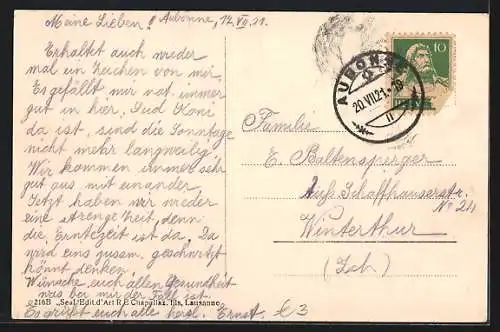 Meine Lieben! Aubonne, 17. VII. 21.
Erhaltet auch wieder
mal ein Zeichen von mir.
Es gefällt mir immer
gut in hier. Seid Koni
da ist, sind die Sonntage
nicht mehr langweilig.
Wir kommen immer sehr
gut aus mit einander.
Jetzt haben wir wieder
eine strenge Zeit, denn
die Erntezeit ist da. Da
wird eins zusam. geschwitzt
könnt denken.
Wünsche euch allen Gesundheit
was bei mir der Fall ist.
Es grüsst euch alle herzl. Ernst.
216B „Seal“ Edit d'Art R.E. Chapallaz, fils, Lausanne
10
AUBONNE
20.VII.21.-18
Familie
E. Baltensperger
Äuss. Schaffhauserstr.
No 24
Winterthur
(Zch.)
€3